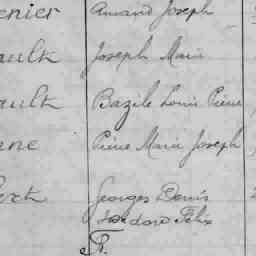 enier Amand Joseph
ault Joseph Marie
ault Bazile Louis Pierre
ne Pierre Marie Joseph
Georges Denis
Isidore Félix